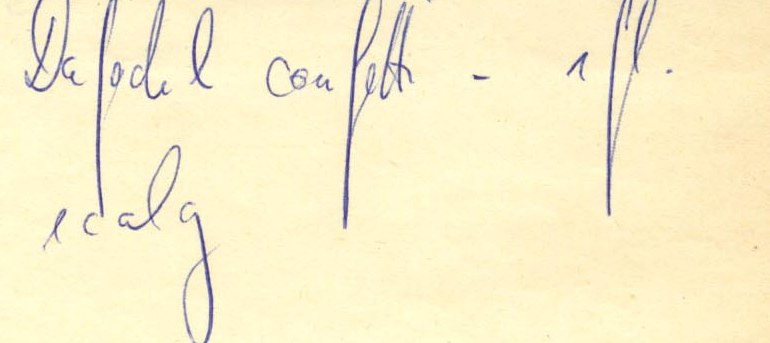 Dafodil confetti - 1 fl.
scalg